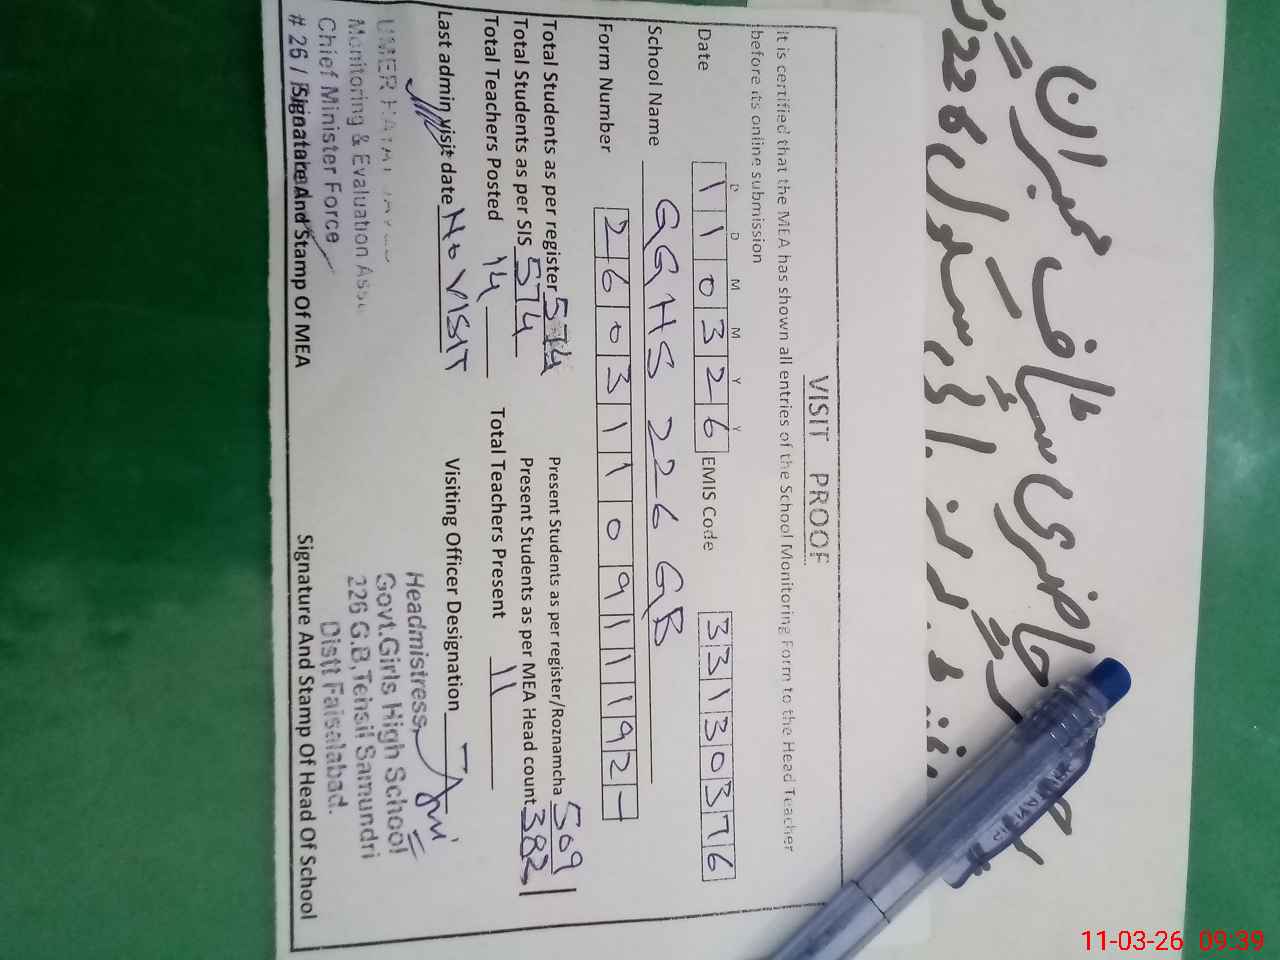 حاضری سٹاف ممبران
VISIT PROOF
It is certified that the MEA has shown all entries of the School Monitoring Form to the Head Teacher
before its online submission
D D M M Y Y
Date 1 1 0 3 2 6 EMIS Code 3 3 1 3 0 3 7 6
School Name GGHS 226 GB
Form Number 2 6 0 3 1 1 0 9 1 1 1 9 2 -
Total Students as per register 574 Present Students as per register/Roznamcha 509
Total Students as per SIS 574 Present Students as per MEA Head count 382
Total Teachers Posted 14 Total Teachers Present 11
Last admin visit date No VISIT Visiting Officer Designation
UMER
Monitoring & Evaluation
Chief Minister Force
# 26 /
Headmistress
Govt.Girls High School
226 G.B,Tehsil Samundri
Distt Faisalabad.
Signature And Stamp Of MEA Signature And Stamp Of Head Of School
11-03-26 09:39